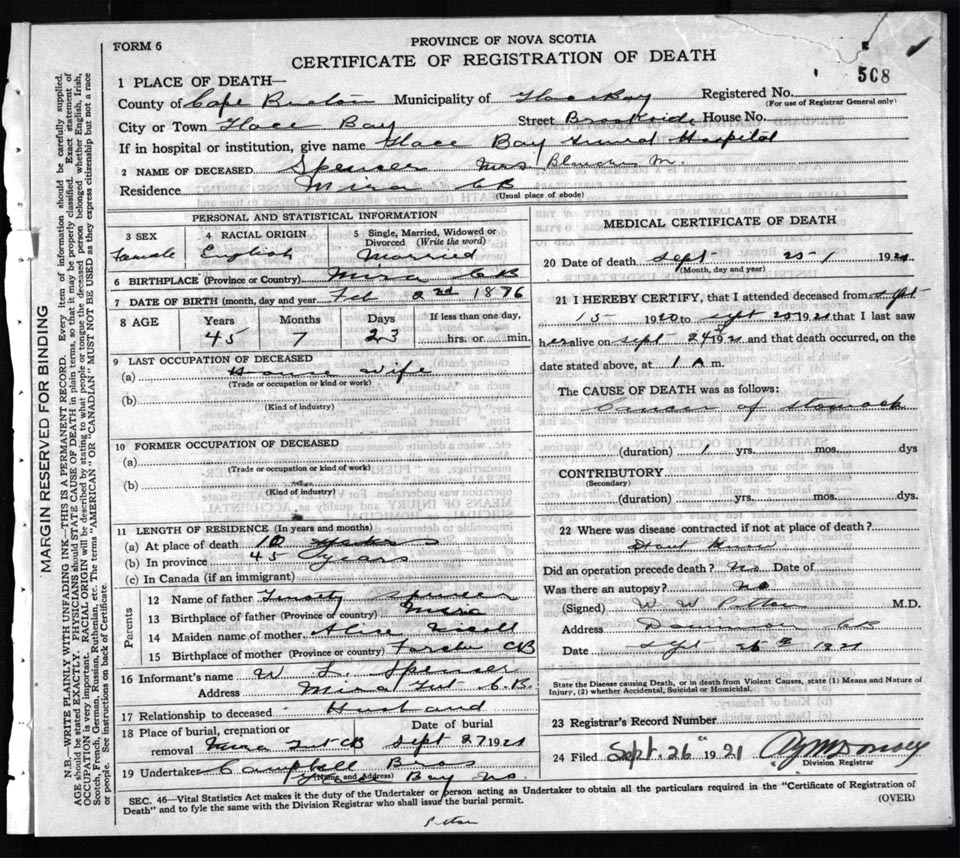 FORM 6
PROVINCE OF NOVA SCOTIA
CERTIFICATE OF REGISTRATION OF DEATH
508
1 PLACE OF DEATH—
County of Cape Breton Municipality of Glace Bay Registered No.
(For use of Registrar General only)
City or Town Glace Bay Street Brookside House No.
If in hospital or institution, give name Glace Bay General Hospital
2 NAME OF DECEASED Spencer Mrs M.
Residence Mira CB
(Usual place of abode)
PERSONAL AND STATISTICAL INFORMATION
3 SEX 4 RACIAL ORIGIN 5 Single, Married, Widowed or Divorced (Write the word)
Female English Married
6 BIRTHPLACE (Province or Country) Mira CB
7 DATE OF BIRTH (month, day and year) Feb 2nd 1876
8 AGE Years Months Days If less than one day,
45 7 23 hrs. or min.
9 LAST OCCUPATION OF DECEASED
(a) House wife
(Trade or occupation or kind or work)
(b)
(Kind of industry)
10 FORMER OCCUPATION OF DECEASED
(a)
(Trade or occupation or kind of work)
(b)
(Kind of industry)
11 LENGTH OF RESIDENCE (In years and months)
(a) At place of death 10
(b) In province 45 years
(c) In Canada (if an immigrant)
Parents
12 Name of father Spencer
13 Birthplace of father (Province or country) Mira
14 Maiden name of mother Alice
15 Birthplace of mother (Province or country) CB
16 Informant's name W. L. Spencer
Address Mira Gut C.B.
17 Relationship to deceased Husband
18 Place of burial, cremation or removal Date of burial
Mira Gut CB Sept 27 1921
19 Undertaker Campbell Bros
(Name and address) Bay NS
MEDICAL CERTIFICATE OF DEATH
20 Date of death Sept 25-1 1921
(Month, day and year)
21 I HEREBY CERTIFY, that I attended deceased from Sept
15 1920 to Sept 25 1921 that I last saw
her alive on Sept 24 1921 and that death occurred, on the
date stated above, at 1 A m.
The CAUSE OF DEATH was as follows:
Cancer of stomach
(duration) 1 yrs. mos. dys
CONTRIBUTORY
(Secondary)
(duration) yrs. mos. dys.
22 Where was disease contracted if not at place of death?
Dont Know
Did an operation precede death? No Date of
Was there an autopsy? No
(Signed) W. W. Patton M.D.
Address Dominion CB
Date Sept 26th 1921
State the Disease causing Death, or in death from Violent Causes, state (1) Means and Nature of
Injury, (2) whether Accidental, Suicidal or Homicidal.
23 Registrar's Record Number
24 Filed Sept. 26th 1921
Division Registrar
SEC. 46—Vital Statistics Act makes it the duty of the Undertaker or person acting as Undertaker to obtain all the particulars required in the "Certificate of Registration of
Death" and to fyle the same with the Division Registrar who shall issue the burial permit.
(OVER)
MARGIN RESERVED FOR BINDING
N.B.—WRITE PLAINLY WITH UNFADING INK—THIS IS A PERMANENT RECORD. Every item of information should be carefully supplied.
AGE should be stated EXACTLY. PHYSICIANS should STATE CAUSE OF DEATH in plain terms, so that it may be properly classified. Exact statement of
OCCUPATION is very important. RACIAL ORIGIN will be described by stating to what people or tongue the deceased person belonged whether English, Irish,
Scotch, French, German, Russian, Ruthenian, etc. The terms "AMERICAN" or "CANADIAN" MUST NOT BE USED as they express citizenship but not a race
or people. See instructions on back of Certificate.